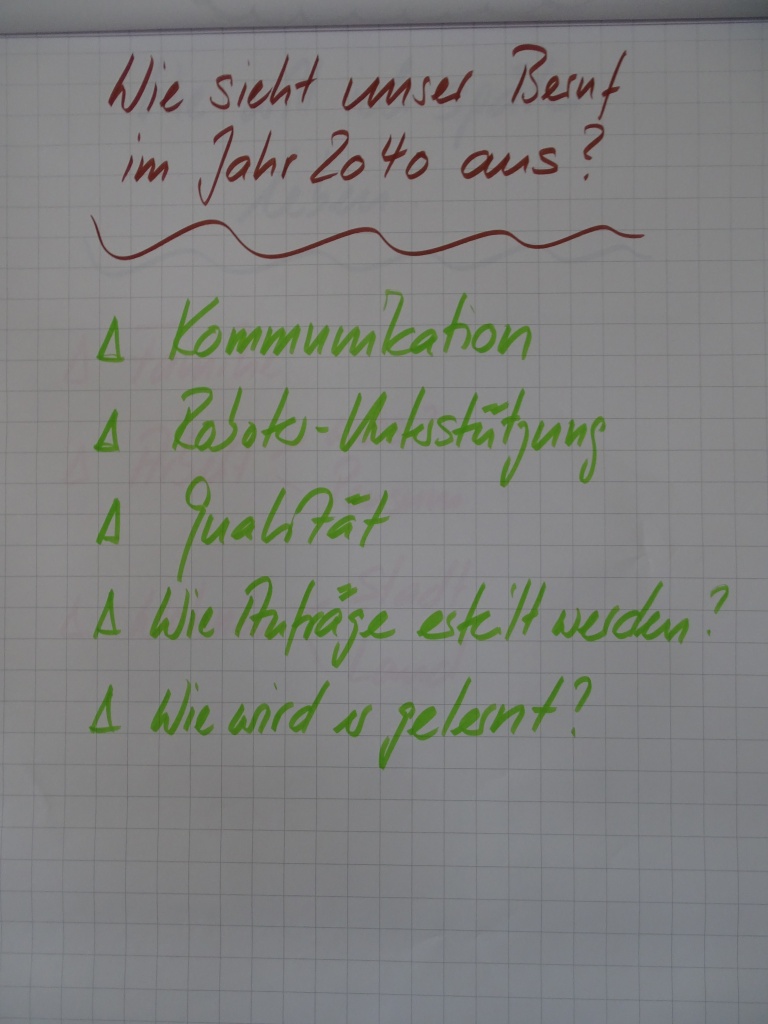 Wie sieht unser Beruf
im Jahr 2040 aus?
Δ Kommunikation
Δ Roboter-Unterstützung
Δ Qualität
Δ Wie Aufträge erteilt werden?
Δ Wie wird er gelernt?